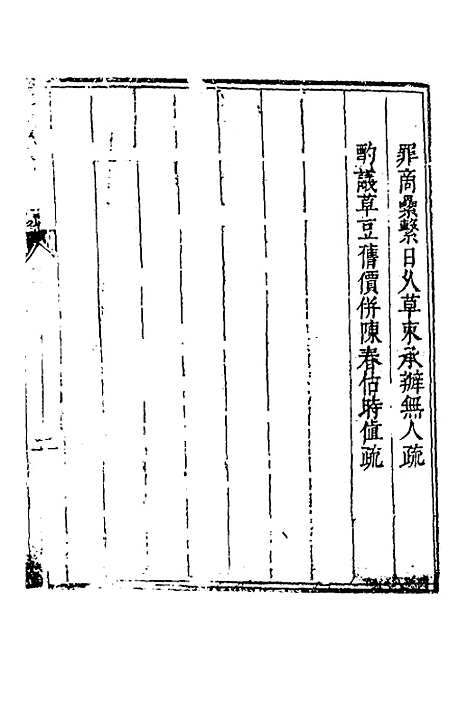 罪商纍繫日久草束承辦無人疏
酌議草豆舊價併陳春估時值疏
二